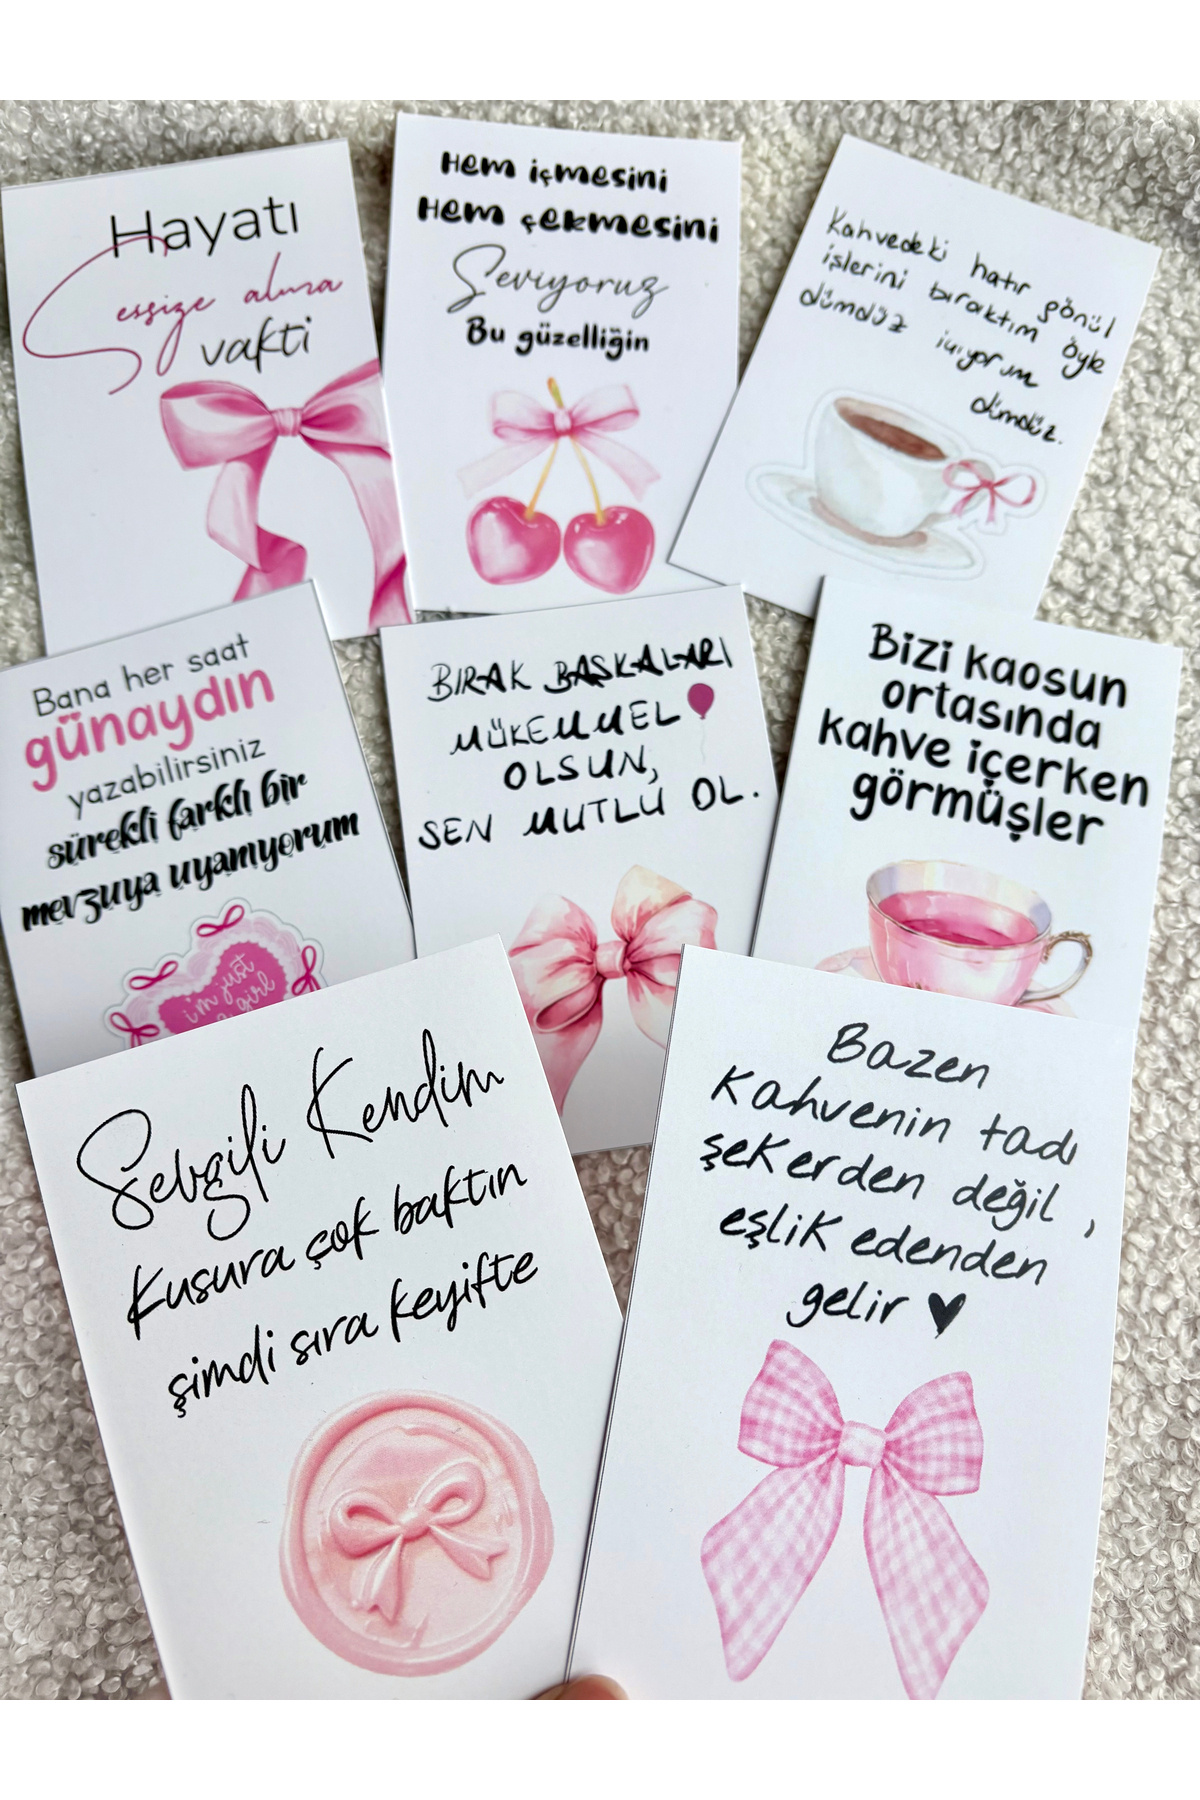 Hayatı
Sessize alma
vakti
Hem içmesini
Hem çekmesini
Seviyoruz
Bu güzelliğin
Kahvedeki hatır gönül
işlerini bıraktım öyle
dümdüz içiyorum
dümdüz.
Bana her saat
günaydın
yazabilirsiniz
sürekli farklı bir
mevzuya uyanıyorum
i'm just
a girl
BIRAK BAŞKALARI
MÜKEMMEL
OLSUN,
SEN MUTLU OL.
Bizi kaosun
ortasında
kahve içerken
görmüşler
Sevgili Kendim
Kusura çok baktın
şimdi sıra keyifte
Bazen
Kahvenin tadı
şekerden değil,
eşlik edenden
gelir ♥